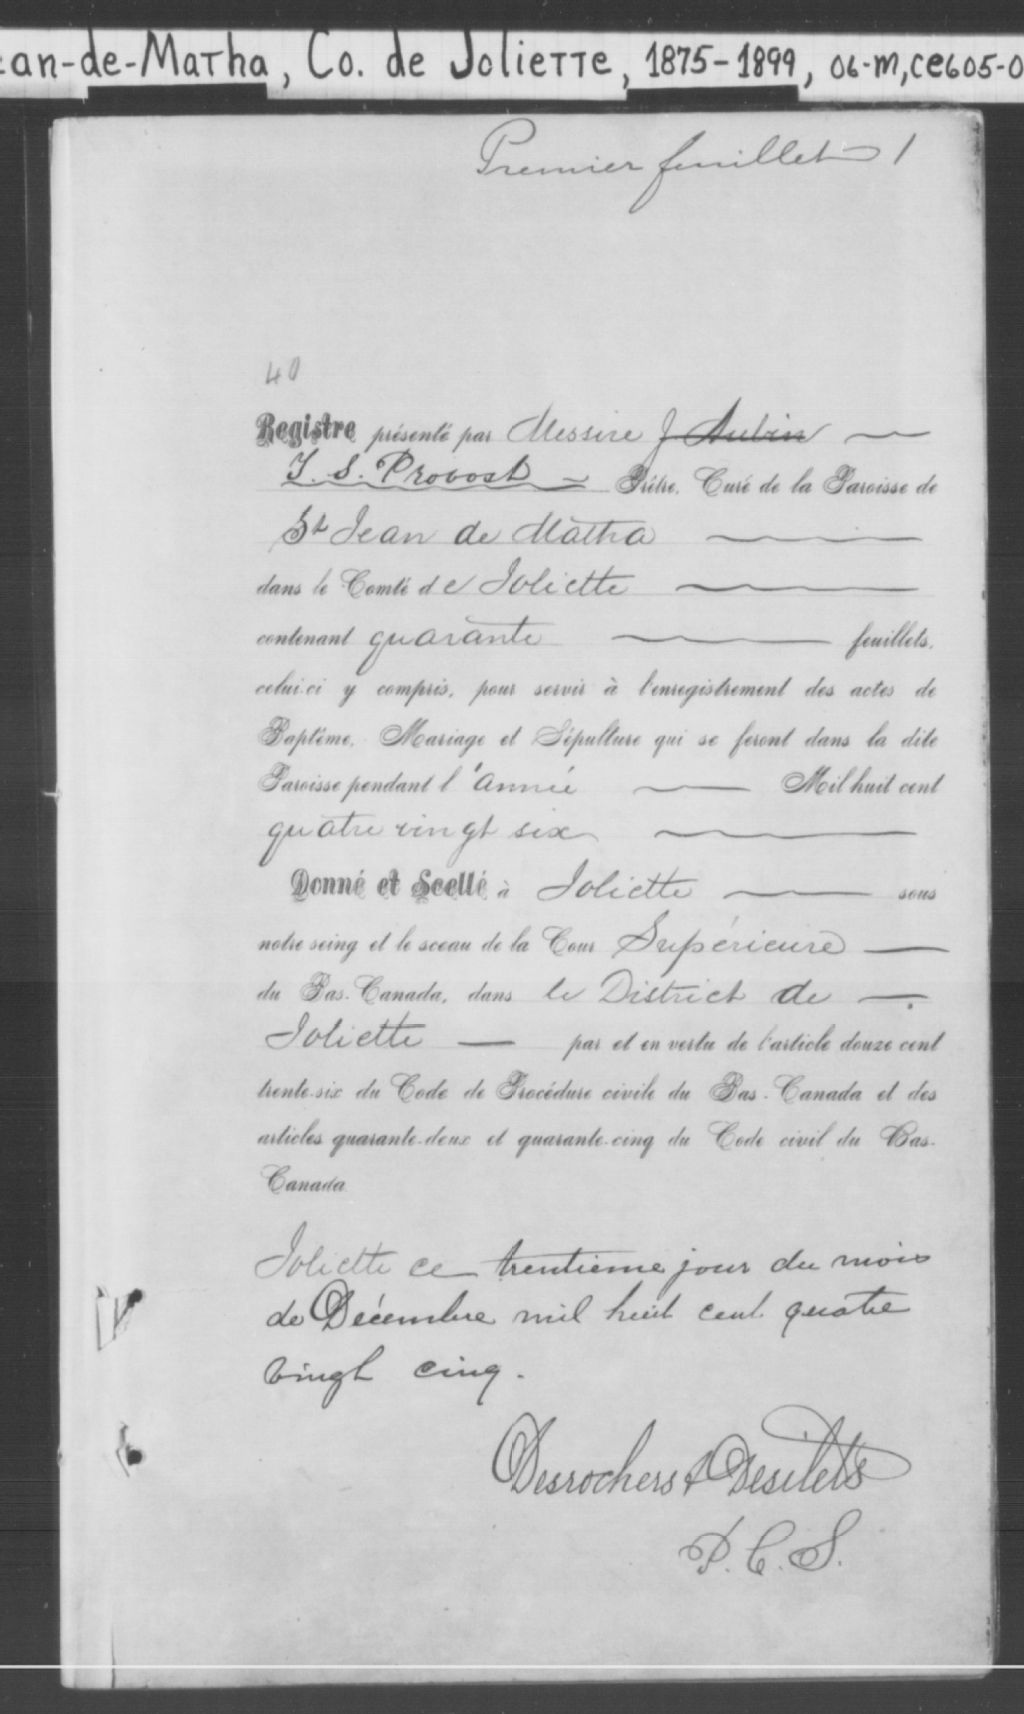 an-de-Matha, Co. de Joliette, 1875-1899, 06-M, CE605-0
Premier feuillet 1
40
Registre présenté par Messire J Aubin
T. S. Provost Prêtre, Curé de la Paroisse de
St Jean de Matha
dans le Comté de Joliette
contenant quarante feuillets,
celui-ci y compris, pour servir à l'enregistrement des actes de
Baptême, Mariage et Sépulture qui se feront dans la dite
Paroisse pendant l'année Mil huit cent
quatre vingt six
Donné et Scellé à Joliette sous
notre seing et le sceau de la Cour Supérieure
du Bas-Canada, dans le District de
Joliette par et en vertu de l'article douze cent
trente-six du Code de Procédure civile du Bas-Canada et des
articles quarante-deux et quarante-cinq du Code civil du Bas-
Canada
Joliette ce trentième jour du mois
de Décembre mil huit cent quatre
vingt cinq.
Desrochers & Desilets
P. C. S.